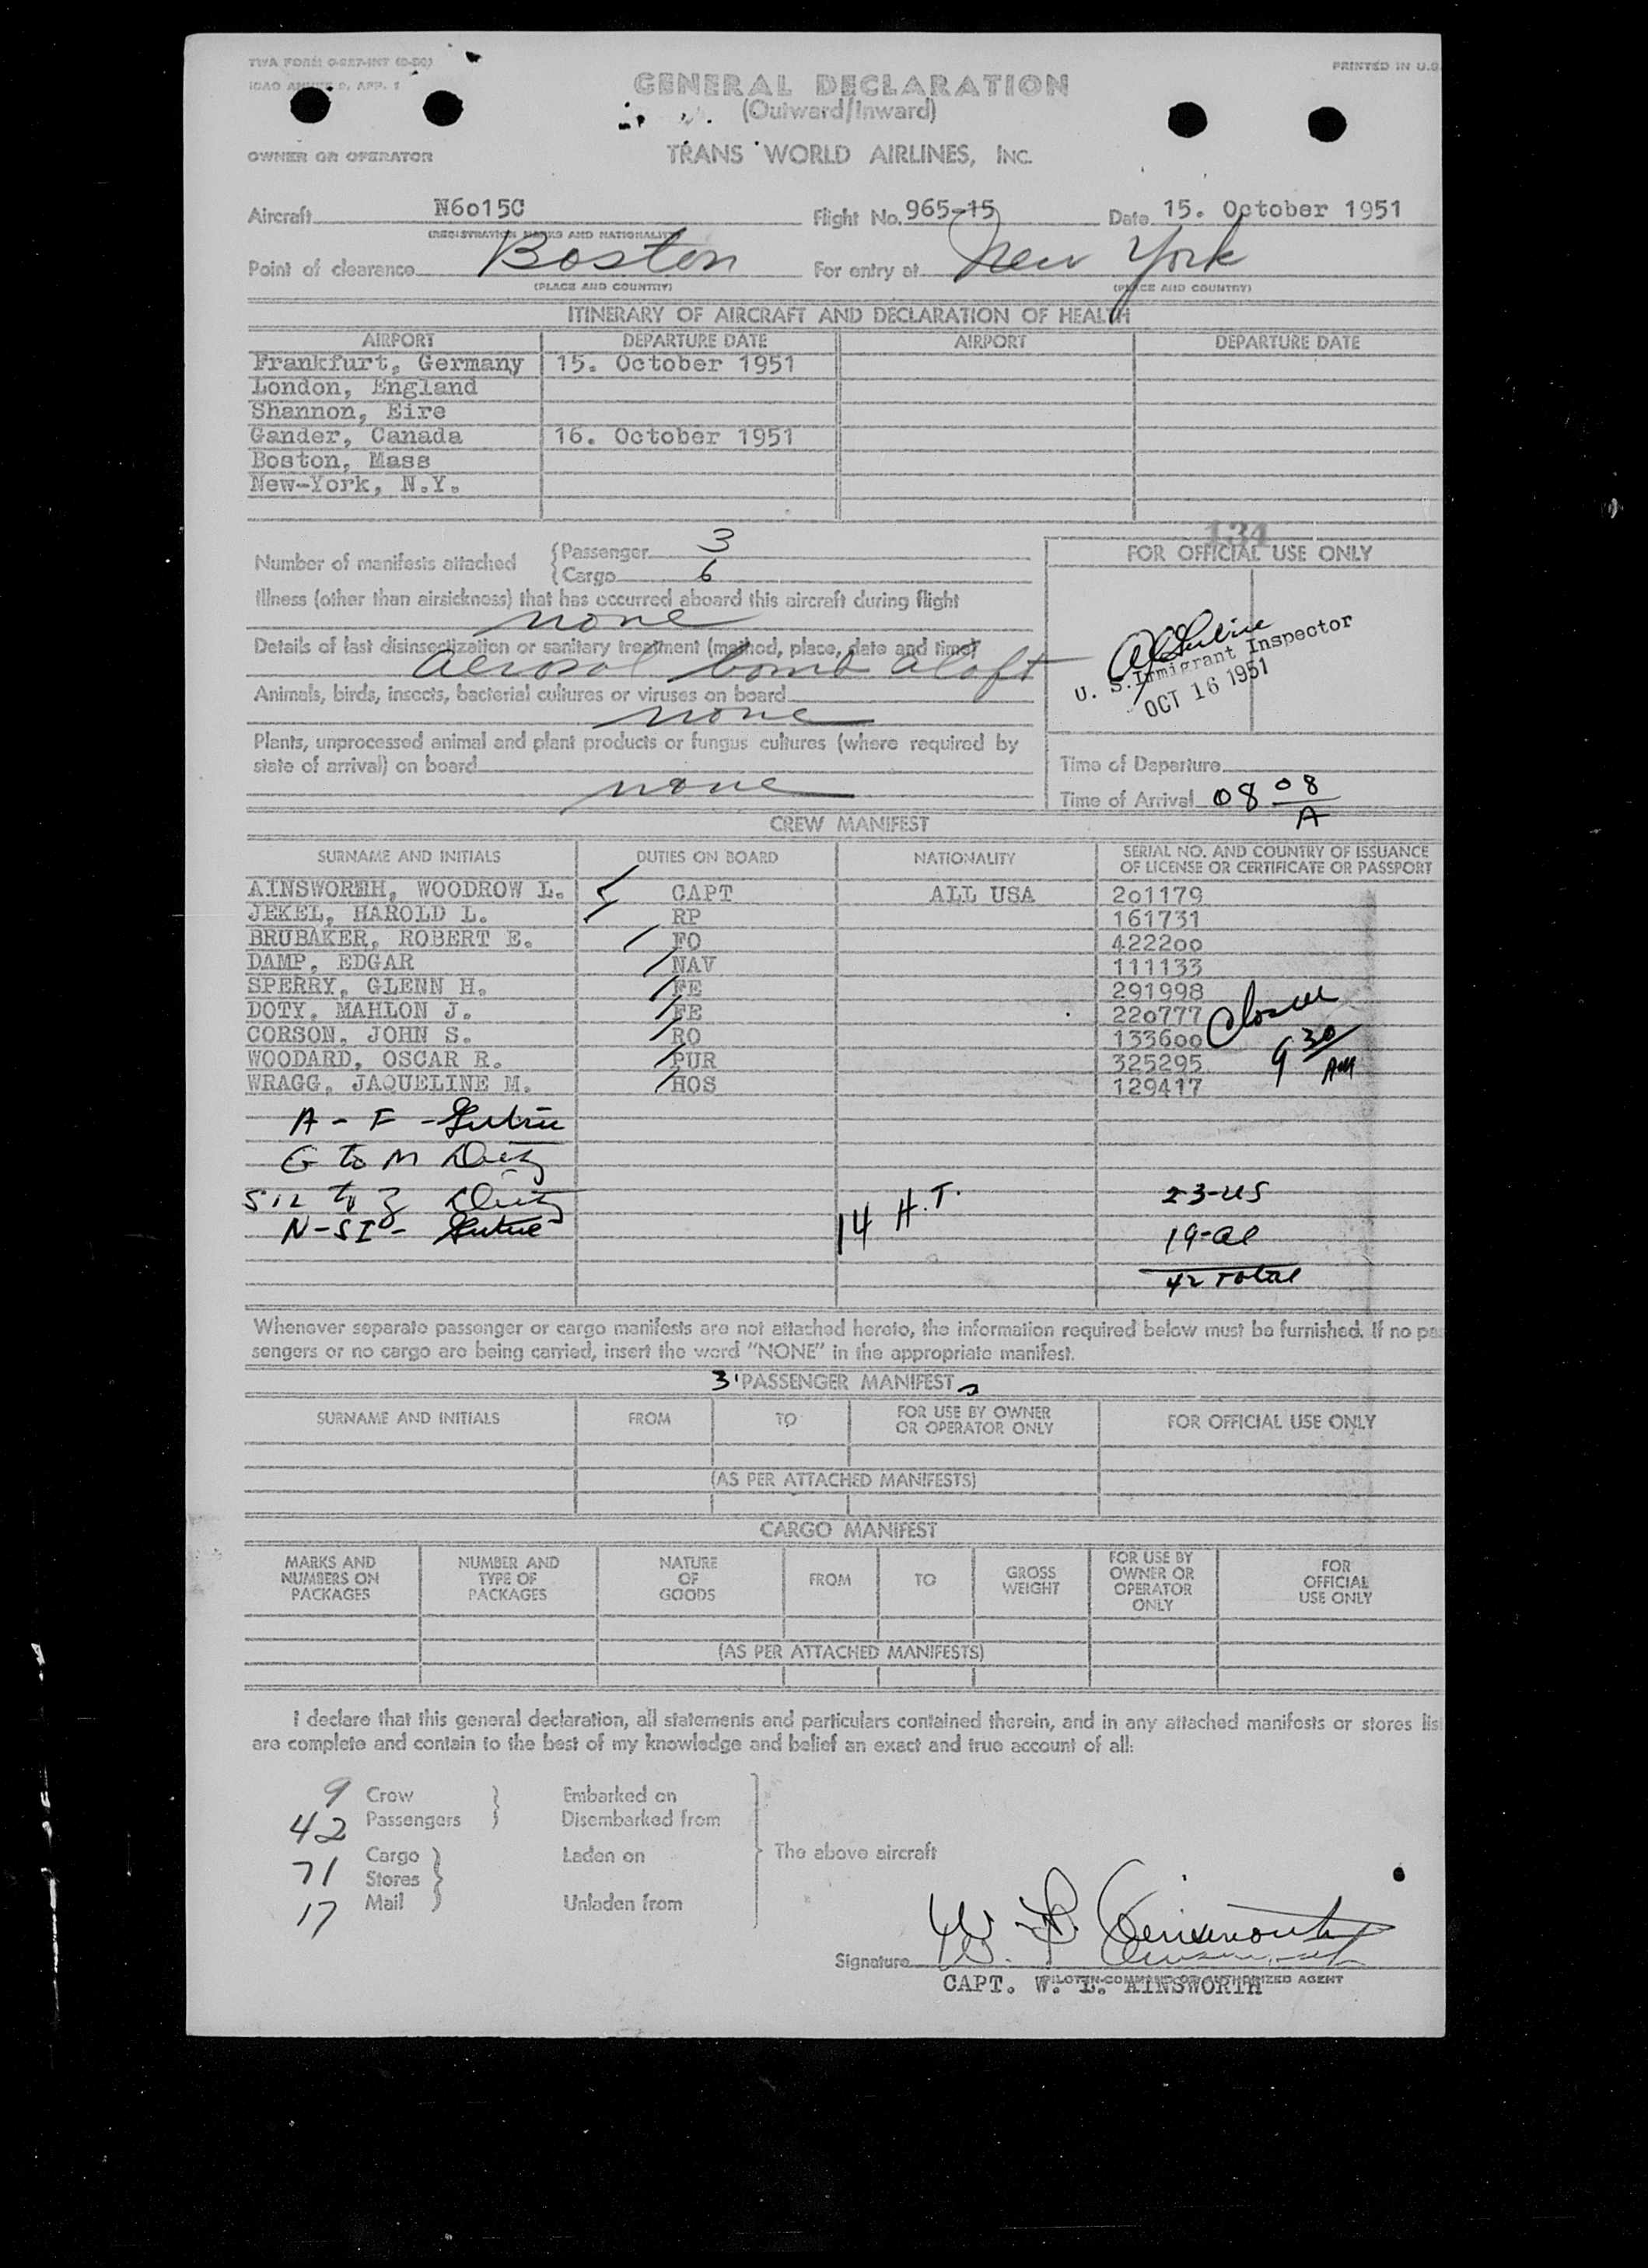 TWA FORM O-227-INT
PRINTED IN U.S.
ICAO ANNEX 9, APP. 1
GENERAL DECLARATION
(Outward/Inward)
OWNER OR OPERATOR TRANS WORLD AIRLINES, INC.
Aircraft N6015C Flight No. 965-15 Date 15. October 1951
(REGISTRATION MARKS AND NATIONALITY)
Point of clearance Boston For entry at New York
(PLACE AND COUNTRY) (PLACE AND COUNTRY)
ITINERARY OF AIRCRAFT AND DECLARATION OF HEALTH
AIRPORT DEPARTURE DATE AIRPORT DEPARTURE DATE
Frankfurt, Germany 15. October 1951
London, England
Shannon, Eire
Gander, Canada 16. October 1951
Boston, Mass
New-York, N.Y.
134
Number of manifests attached Passenger 3
Cargo 6
FOR OFFICIAL USE ONLY
Illness (other than airsickness) that has occurred aboard this aircraft during flight
none
Details of last disinsectization or sanitary treatment (method, place, date and time)
aerosol bomb aloft
U. S. Immigrant Inspector
OCT 16 1951
Animals, birds, insects, bacterial cultures or viruses on board
none
Plants, unprocessed animal and plant products or fungus cultures (where required by
state of arrival) on board
none
Time of Departure
Time of Arrival 08 08 A
CREW MANIFEST
SURNAME AND INITIALS DUTIES ON BOARD NATIONALITY SERIAL NO. AND COUNTRY OF ISSUANCE
OF LICENSE OR CERTIFICATE OR PASSPORT
AINSWORTH, WOODROW L. CAPT ALL USA 201179
JEKEL, HAROLD L. RP 161731
BRUBAKER, ROBERT E. FO 422200
DAMP, EDGAR NAV 111133
SPERRY, GLENN H. FE 291998
DOTY, MAHLON J. FE 220777
CORSON, JOHN S. RO 133600
WOODARD, OSCAR R. PUR 325295
WRAGG, JAQUELINE M. HOS 129417
9 30 AM
A - F -
G to M
to Z
N-SI-
14 H.T.
23-US
19-al
42 Total
Whenever separate passenger or cargo manifests are not attached hereto, the information required below must be furnished. If no pas
sengers or no cargo are being carried, insert the word "NONE" in the appropriate manifest.
3 PASSENGER MANIFEST s
SURNAME AND INITIALS FROM TO FOR USE BY OWNER
OR OPERATOR ONLY FOR OFFICIAL USE ONLY
(AS PER ATTACHED MANIFESTS)
CARGO MANIFEST
MARKS AND
NUMBERS ON
PACKAGES
NUMBER AND
TYPE OF
PACKAGES
NATURE
OF
GOODS
FROM
TO
GROSS
WEIGHT
FOR USE BY
OWNER OR
OPERATOR
ONLY
FOR
OFFICIAL
USE ONLY
(AS PER ATTACHED MANIFESTS)
I declare that this general declaration, all statements and particulars contained therein, and in any attached manifests or stores lis
are complete and contain to the best of my knowledge and belief an exact and true account of all:
9 Crew Embarked on
42 Passengers Disembarked from
71 Cargo Laden on The above aircraft
Stores
17 Mail Unladen from
Signature W. L. Ainsworth
PILOT-IN-COMMAND OR AUTHORIZED AGENT
CAPT. W. L. AINSWORTH